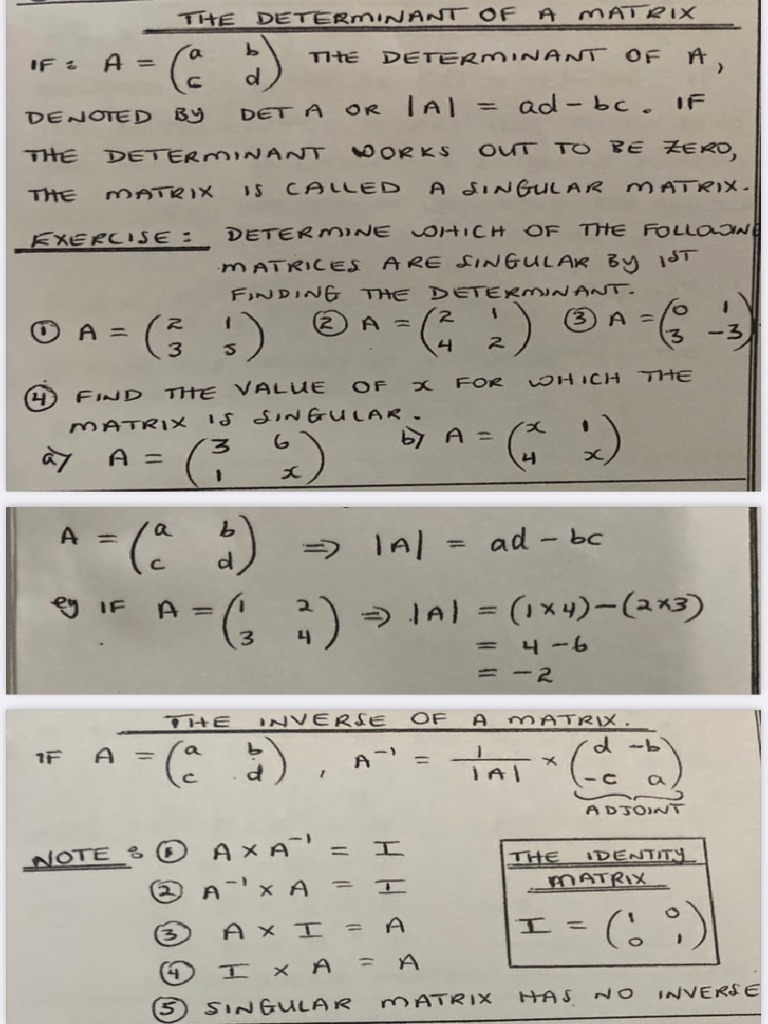 THE DETERMINANT OF A MATRIX
IF: A = (a b / c d) THE DETERMINANT OF A,
DENOTED BY DET A OR |A| = ad - bc. IF
THE DETERMINANT WORKS OUT TO BE ZERO,
THE MATRIX IS CALLED A SINGULAR MATRIX.
EXERCISE: DETERMINE WHICH OF THE FOLLOWING
MATRICES ARE SINGULAR BY 1ST
FINDING THE DETERMINANT.
① A = (2 1 / 3 5) ② A = (2 1 / 4 2) ③ A = (0 1 / 3 -3)
④ FIND THE VALUE OF x FOR WHICH THE
MATRIX IS SINGULAR.
a) A = (3 6 / 1 x) b) A = (x 1 / 4 x)
A = (a b / c d) ⇒ |A| = ad - bc
eg IF A = (1 2 / 3 4) ⇒ |A| = (1×4)-(2×3)
= 4 - 6
= -2
THE INVERSE OF A MATRIX.
IF A = (a b / c d), A⁻¹ = 1/|A| × (d -b / -c a)
ADJOINT
NOTE: ① A × A⁻¹ = I
② A⁻¹ × A = I
③ A × I = A
④ I × A = A
⑤ SINGULAR MATRIX HAS NO INVERSE
THE IDENTITY
MATRIX
I = (1 0 / 0 1)